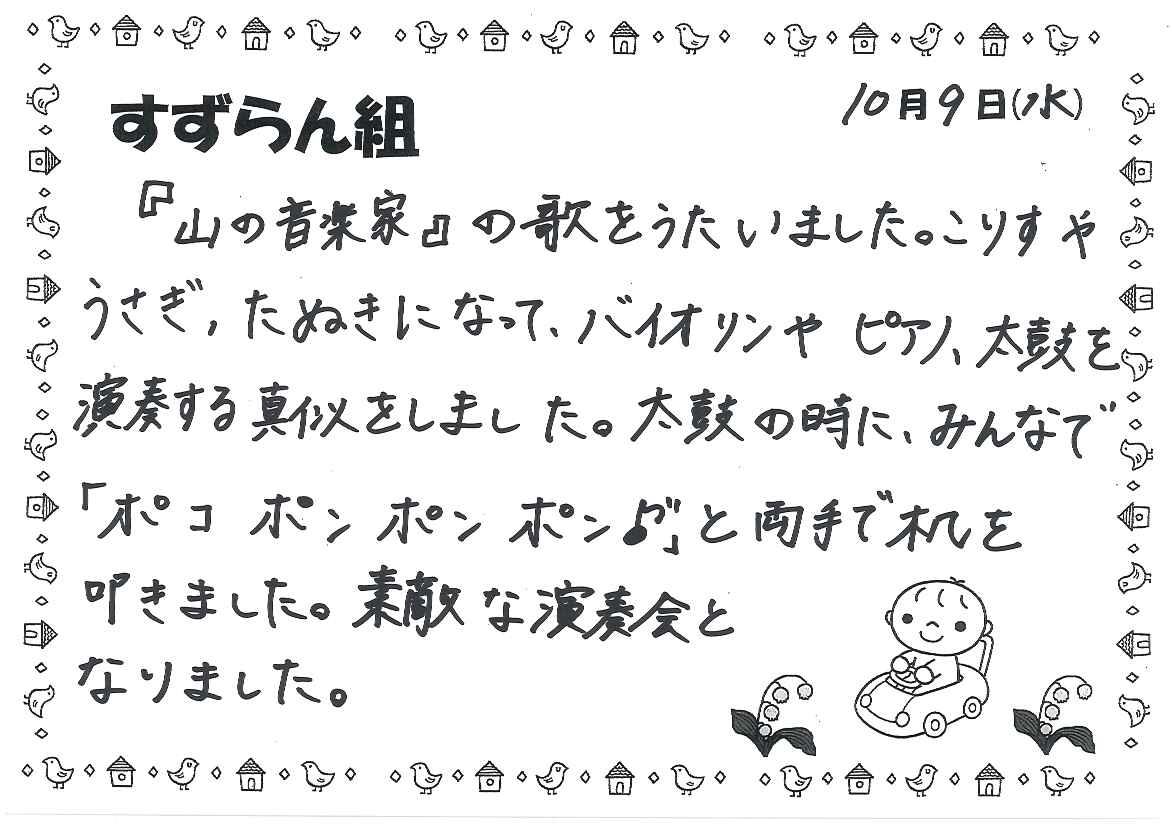 すずらん組
10月9日(水)
『山の音楽家』の歌をうたいました。こりすや
うさぎ,たぬきになって、バイオリンや ピアノ、太鼓を
演奏する真似をしました。太鼓の時に、みんなで
「ポコ ポン ポン ポン♪」と両手で机を
叩きました。素敵な演奏会と
なりました。